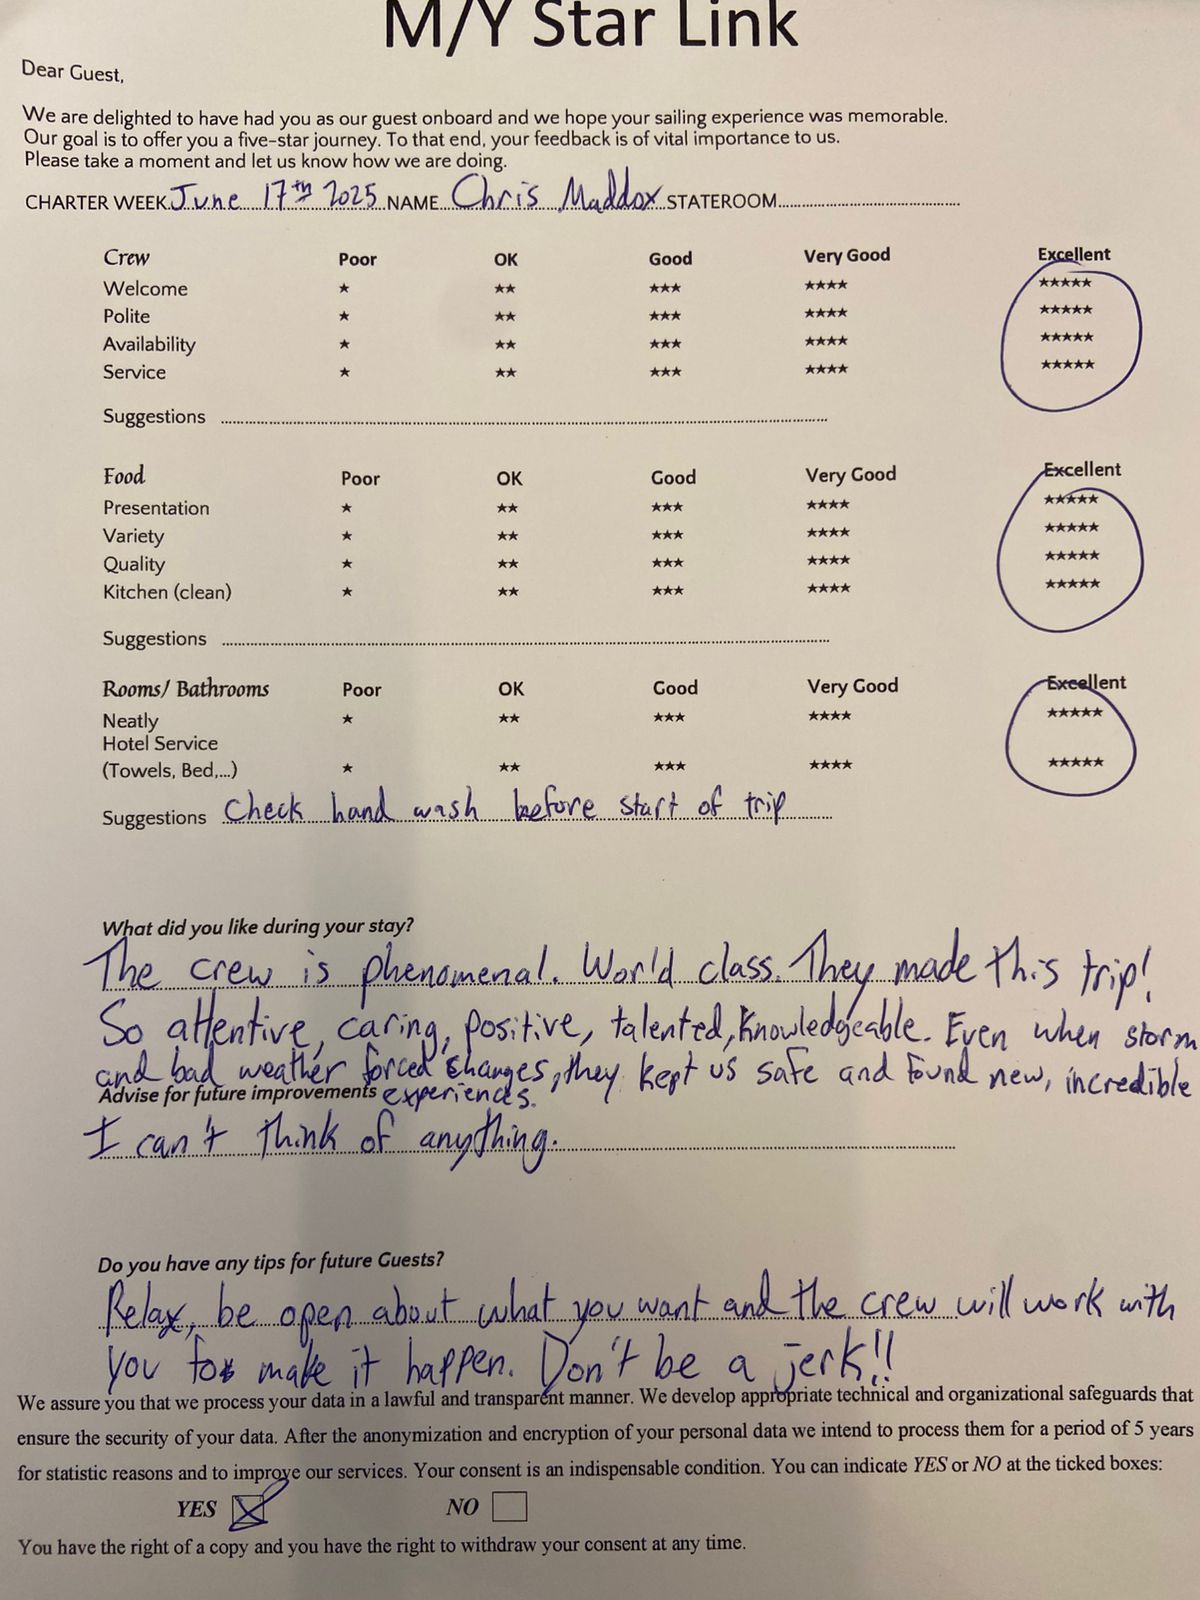 M/Y Star Link
Dear Guest,
We are delighted to have had you as our guest onboard and we hope your sailing experience was memorable.
Our goal is to offer you a five-star journey. To that end, your feedback is of vital importance to us.
Please take a moment and let us know how we are doing.
CHARTER WEEK June 17th 2025 NAME Chris Maddox STATEROOM
Crew Poor OK Good Very Good Excellent
Welcome ★ ★★ ★★★ ★★★★ ★★★★★
Polite ★ ★★ ★★★ ★★★★ ★★★★★
Availability ★ ★★ ★★★ ★★★★ ★★★★★
Service ★ ★★ ★★★ ★★★★ ★★★★★
Suggestions
Food Poor OK Good Very Good Excellent
Presentation ★ ★★ ★★★ ★★★★ ★★★★★
Variety ★ ★★ ★★★ ★★★★ ★★★★★
Quality ★ ★★ ★★★ ★★★★ ★★★★★
Kitchen (clean) ★ ★★ ★★★ ★★★★ ★★★★★
Suggestions
Rooms/ Bathrooms Poor OK Good Very Good Excellent
Neatly ★ ★★ ★★★ ★★★★ ★★★★★
Hotel Service
(Towels, Bed,...) ★ ★★ ★★★ ★★★★ ★★★★★
Suggestions Check hand wash before start of trip
What did you like during your stay?
The crew is phenomenal. World class. They made this trip!
So attentive, caring, positive, talented, knowledgeable. Even when storm
and bad weather forced changes, they kept us safe and found new, incredible
experiences.
Advise for future improvements
I can't think of anything.
Do you have any tips for future Guests?
Relax, be open about what you want and the crew will work with
you to make it happen. Don't be a jerk!!
We assure you that we process your data in a lawful and transparent manner. We develop appropriate technical and organizational safeguards that
ensure the security of your data. After the anonymization and encryption of your personal data we intend to process them for a period of 5 years
for statistic reasons and to improve our services. Your consent is an indispensable condition. You can indicate YES or NO at the ticked boxes:
YES NO
You have the right of a copy and you have the right to withdraw your consent at any time.